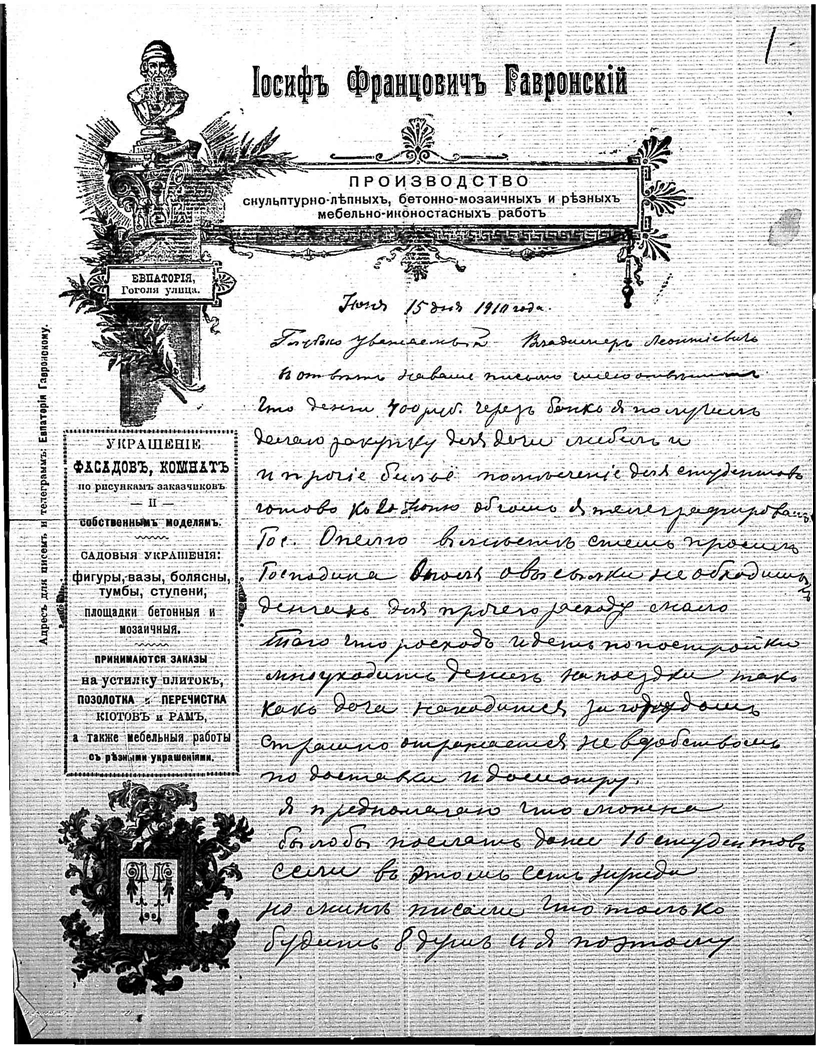 1
Іосифъ Францовичъ Гавронскій
ПРОИЗВОДСТВО
скульптурно-лѣпныхъ, бетонно-мозаичныхъ и рѣзныхъ
мебельно-иконостасныхъ работъ
ЕВПАТОРІЯ,
Гоголя улица.
Адресъ для писемъ и телеграммъ: Евпаторія Гавронскому.
УКРАШЕНІЕ
ФАСАДОВЪ, КОМНАТЪ
по рисункамъ заказчиковъ
— II —
собственнымъ моделямъ.
САДОВЫЯ УКРАШЕНІЯ:
фигуры, вазы, болясны,
тумбы, ступени,
площадки бетонныя и
мозаичныя.
ПРИНИМАЮТСЯ ЗАКАЗЫ
на устилку плитокъ,
ПОЗОЛОТКА и ПЕРЕЧИСТКА
КІОТОВЪ и РАМЪ,
а также мебельныя работы
съ рѣзными украшеніями.
15 дня 1910 года.
Глубоко уважаемый Владимеръ Леонтіевичъ
В отвѣтъ на ваше письмо
Что денги 400 руб. черезъ банкъ я получилъ
делаю закупку для дачи мебель и
и прочіе бильё помѣсченіе для студентовъ
готово ко 20 Іюню обчомъ я телеграфировалъ
Гос.
Господина о высылки необходимыхъ
денгахъ для прочего расходу мало
того что росходъ идетъ по постройки
много уходитъ денегъ на поездки такъ
какъ дача находится за городомъ
страшно отражается не вдобствомъ
по доставки и досмотру.
Я предполагаю что можна
былобы послать даже 10 студентовъ
если въ этомъ есть нужда
но мине писали что только
будитъ 8 душъ и я поэтому